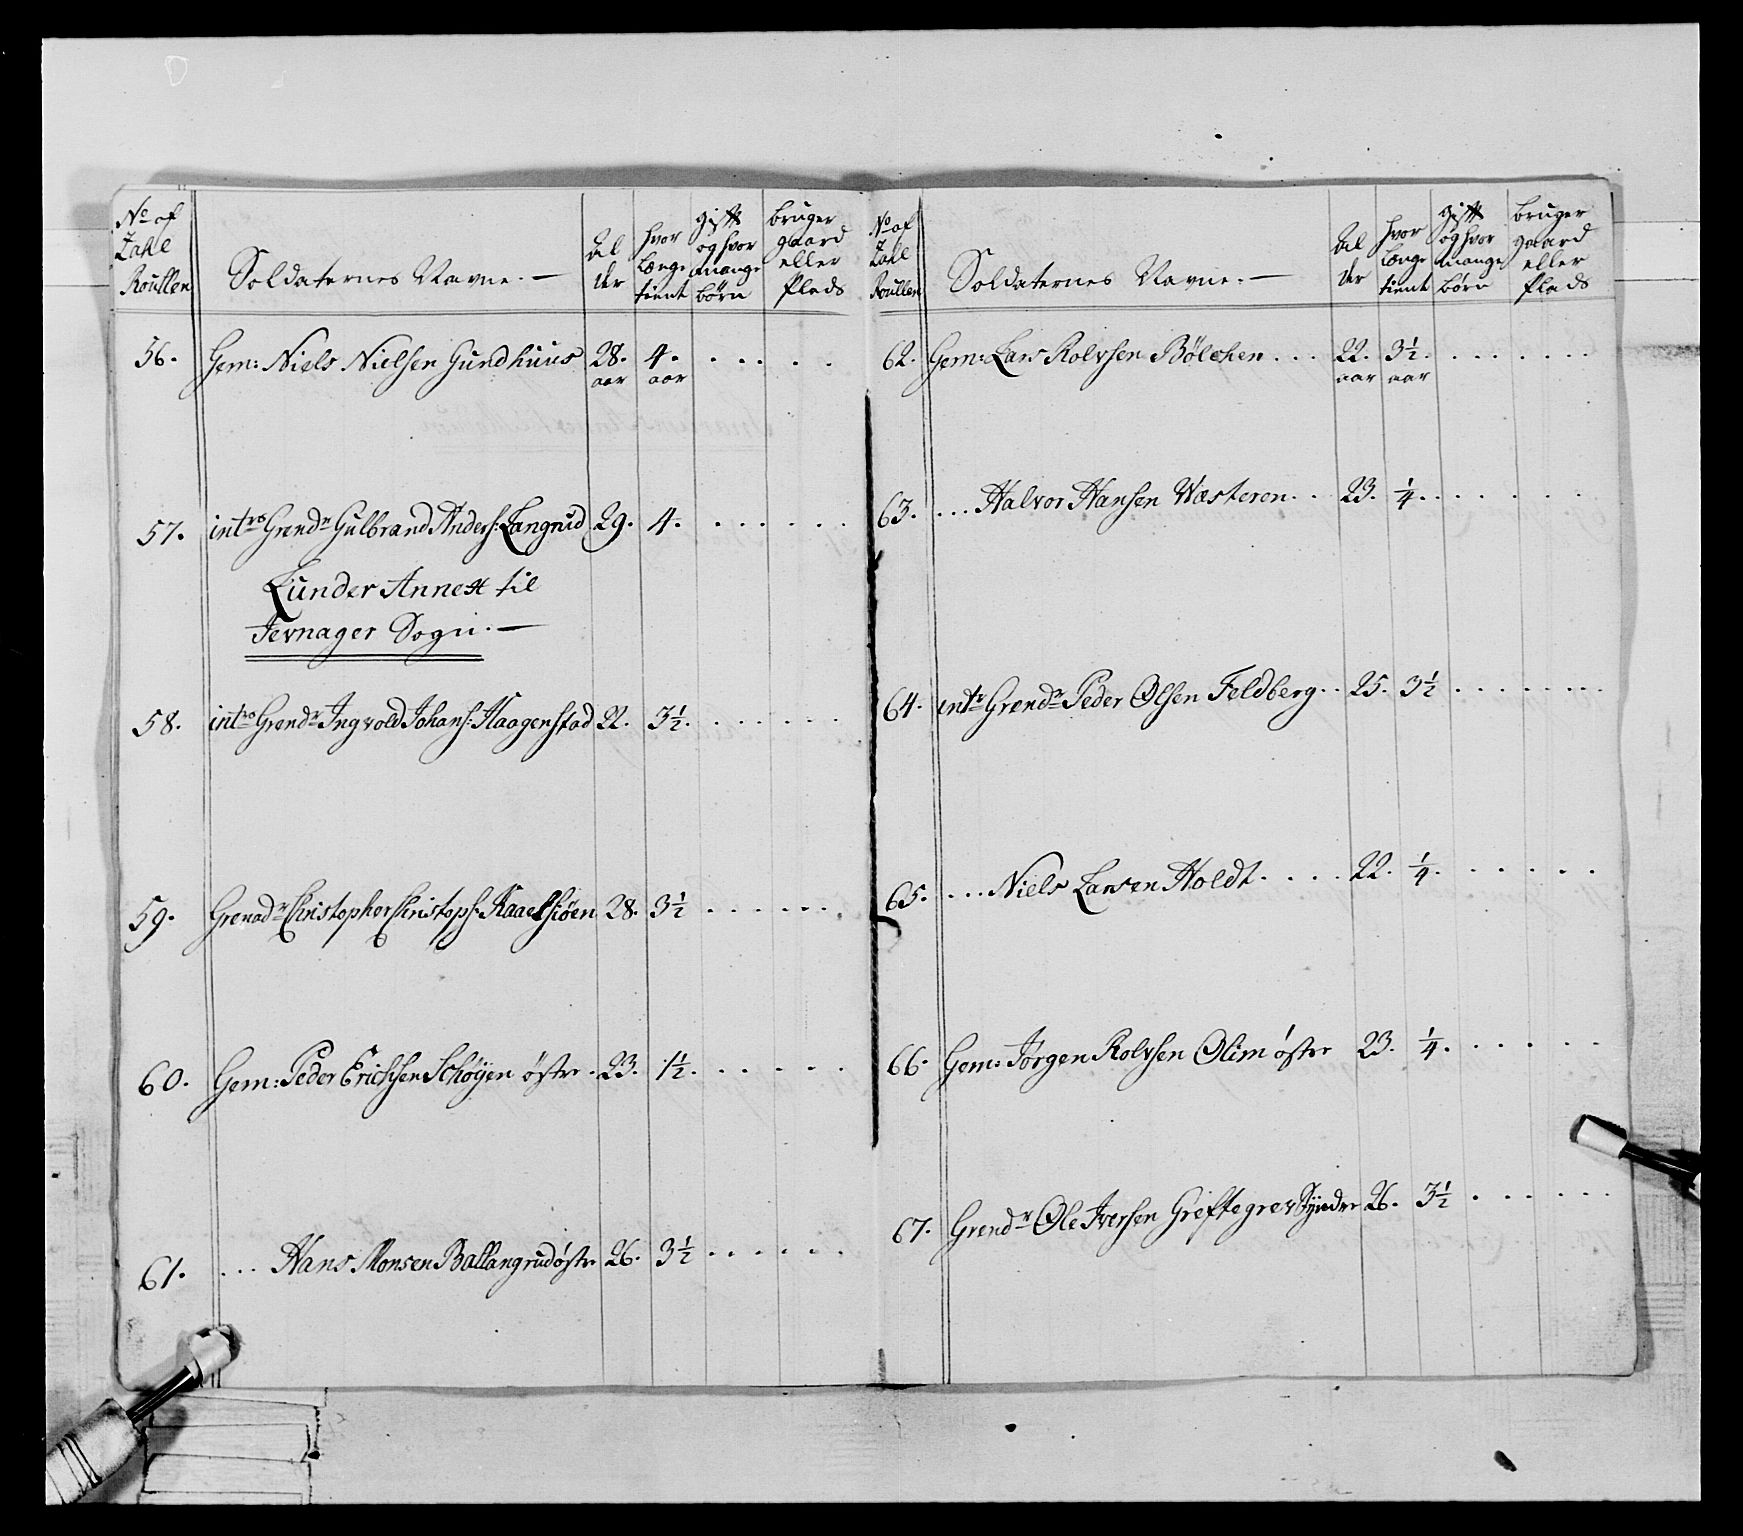 No af Zahl Roullen
Soldaternes Navne. —
Al der
hvor længe tient
gift og hvor mange børn
bruger gaard eller Plads
56. Gem: Niels Nielsen Gundhuus 28. aar 4. aar . . . . .
57. intr Grendr Gulbrand Anders: Langrud 29. 4. . . . . .
Lunder Annex til
Jevnager Sogn. —
58. intr Grendr Ingvold Johans: Haagenstad 22. 3½. . . . . .
59. Grenadr Christopher Christophs: Kaaelsiøen 28. 3½ . . . . .
60. Gem: Peder Erichsen Schøyen østre . 23. 1½. . . . . .
61. . . . Hans Monsen Ballangrud østre 26. 3½ . . . . .
No af Zahl Roullen
Soldaternes Navne. —
Al der
hvor længe tient
gift og hvor mange børn
bruger gaard eller Plads
62. Gem: Lars Rolvsen Bølchen . . . 22. aar 3½. aar . . . . .
63. . . . Halvor Hansen Wæsteren . . 23. ¼. . . . . .
64. intr Grendr Peder Olsen Feldberg . . 25. 3½ . . . . .
65. . . . Niels Larsen Holdt . . . . 22. ¼. . . . . .
66. Gem: Jørgen Rolvsen Olim østre 23. ¼. . . . . .
67. Grendr Ole Iversen Greftegrev Syndre 26. 3½ . . . . .